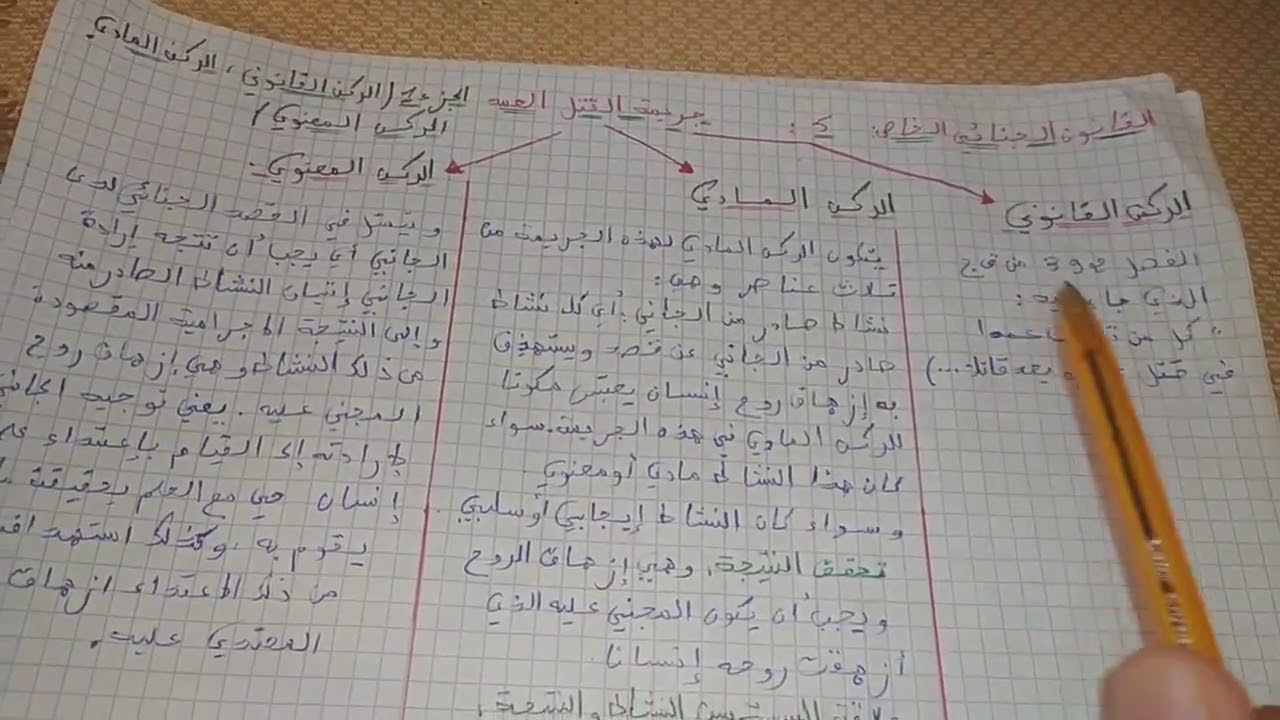 القانون الجنائي الخاص: 5 : جريمة القتل العمد الجزء 1 (الركن القانوني، الركن المادي،
الركن المعنوي)
الركن القانوني
الفصل 392 من ق ج
الذي جاء
" كل من عمدا
في قتل يعد قاتلا...)
الركن المادي
يتكون الركن المادي لهذه الجريمة من
ثلاث عناصر وهي:
نشاط صادر من الجاني: أي كل نشاط
صادر من الجاني عن قصد ويستهدف
به إزهاق روح إنسان يعتبر مكونا
للركن المادي في هذه الجريمة. سواء
كان هذا النشاط مادي أو معنوي
وسواء كان النشاط إيجابي أو سلبي.
تحقق النتيجة. وهي إزهاق الروح
ويجب أن يكون المجني عليه الذي
أزهقت روحه إنسانا
علاقة السببية بين النشاط والنتيجة.
الركن المعنوي:
ويتمثل في القصد الجنائي لدى
الجاني أي يجب أن تتجه إرادة
الجاني إتيان النشاط الصادر منه
وإلى النتيجة الاجرامية المقصودة
من ذلك النشاط وهي إزهاق روح
المجني عليه. يعني توجيه الجاني
لإرادته إلى القيام بإعتداء على
إنسان حي مع العلم بحقيقة
يقوم به، وكذلك
من ذلك الاعتداء ازهاق
المعتدي عليه.